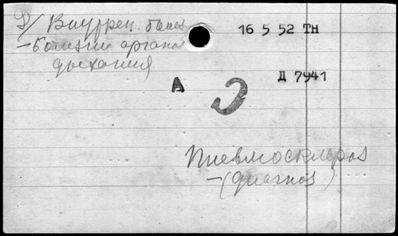 Внутрен. болез
16 5 52 ТН
– Болезни органов
дыхания
А
Д 7941
Пневмосклероз
– (диагноз)